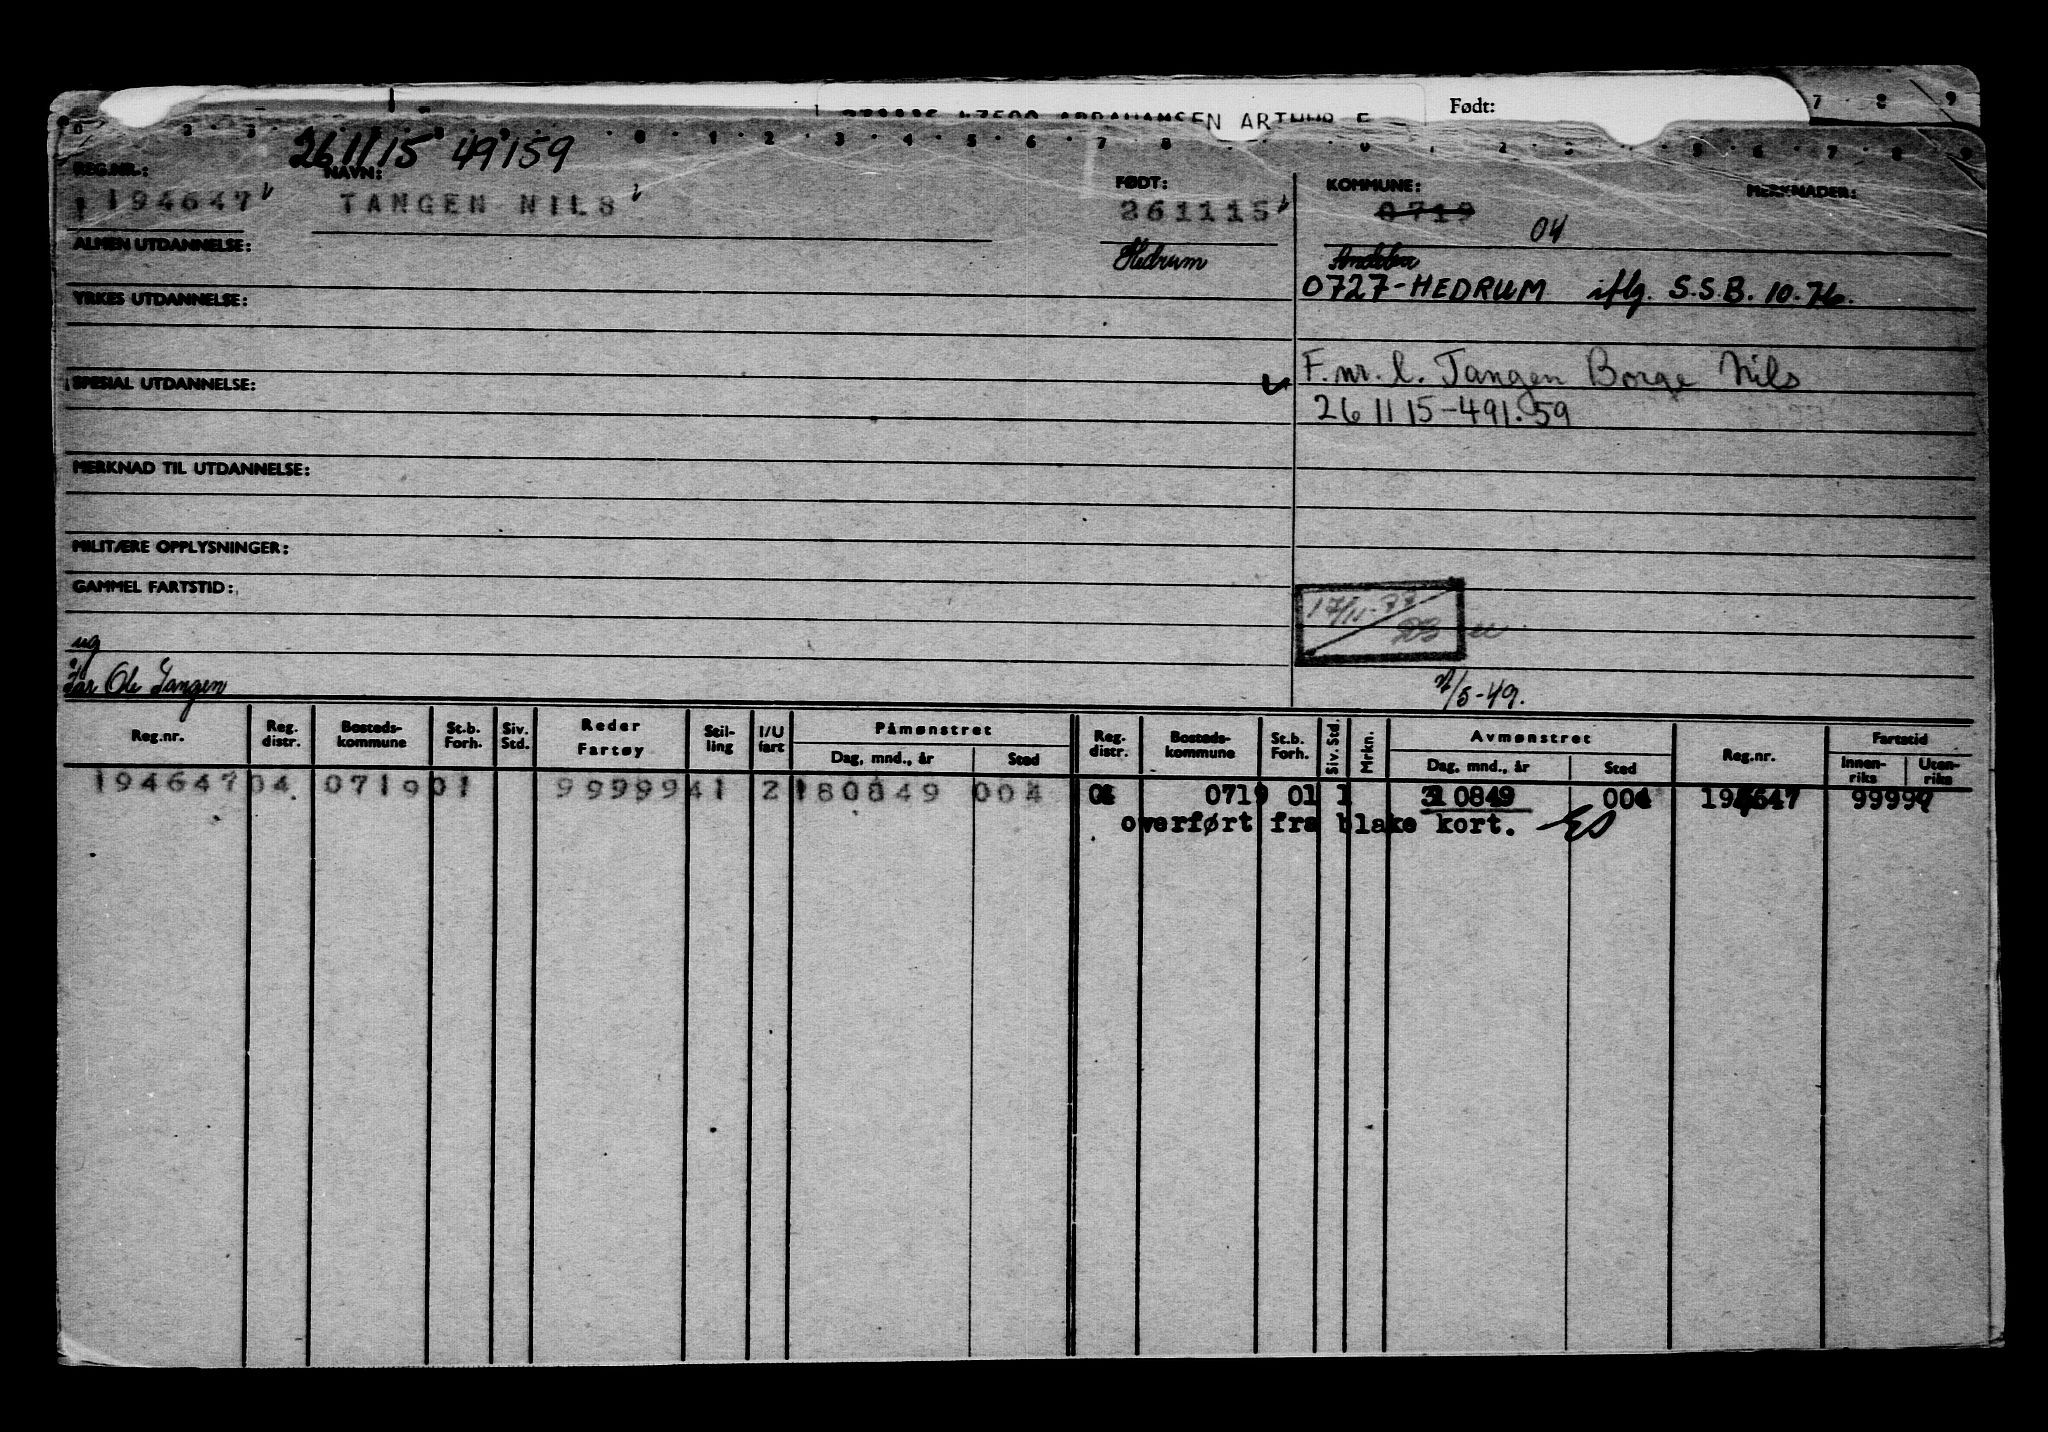 ABRAHAMSEN ARTHUR F Født:
7 8 9
26 11 15 49159
REG.NR.: NAVN: FØDT: KOMMUNE: MERKNADER:
194647 TANGEN NILS 261115 0719
04
ALMEN UTDANNELSE: Hedrum
0727-HEDRUM iflg. S.S.B. 10.76.
YRKES UTDANNELSE:
F.nr. l. Tangen Borge Nils
SPESIAL UTDANNELSE:
26 11 15-491.59
MERKNAD TIL UTDANNELSE:
MILITÆRE OPPLYSNINGER:
GAMMEL FARTSTID:
17/11-77
ug
Far Ole Tangen
/5-49.
Reg.nr. Reg. distr. Bosteds-kommune St.b. Forh. Siv. Std. Reder Fartøy Stil-ling I/U fart Påmønstret Dag, mnd., år Sted Reg. distr. Bosteds-kommune St.b. Forh. Siv. Std. Mrkn. Avmønstret Dag, mnd., år Sted Reg.nr. Fartstid Innen-riks Uten-riks
194647 04 0719 01 99999 41 2 180849 004 0719 01 1 0849 004 194647 99999
overført fra blake kort. ES